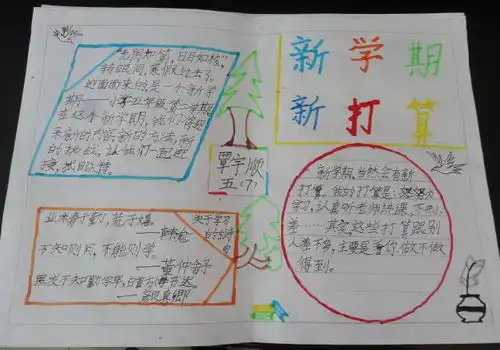 "光阴如箭,日月如梭"
转眼间,寒假过去了,
迎面而来的是一个新学
期——小学五年级第二学期
在这个新学期,我们将迎
来新的内容,新的方法,新
的挑战,让我们一起迎
接,拭目以待。
新学期
新打算
覃宇顺
五(7)
业精于勤,荒于嬉,
——韩愈
不知则问,不能则学。
——董仲舒
黑发不知勤学早,白首方悔
——颜真卿
关于学习
的名诗
新学期,当然会有新
打算,我的打算是:努力学
习,认真听老师讲课,不
差…其实这打算跟别
人差不多,主要是看你做不做
得到。